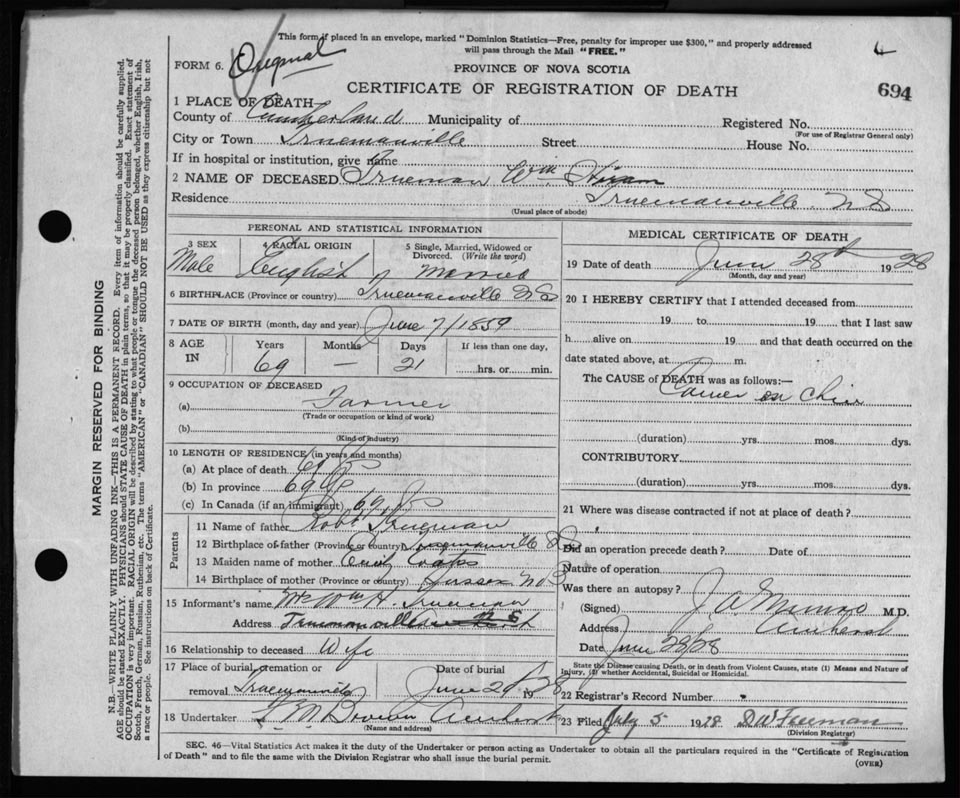 This form if placed in an envelope, marked "Dominion Statistics—Free, penalty for improper use $300," and properly addressed
will pass through the Mail "FREE."
FORM 6. Original
694
PROVINCE OF NOVA SCOTIA
CERTIFICATE OF REGISTRATION OF DEATH
1 PLACE OF DEATH—
County of Cumberland Municipality of Registered No.
(For use of Registrar General only)
City or Town Truemanville Street House No.
If in hospital or institution, give name
2 NAME OF DECEASED Trueman Wm Hiram
Residence Truemanville N S
(Usual place of abode)
PERSONAL AND STATISTICAL INFORMATION
3 SEX 4 RACIAL ORIGIN 5 Single, Married, Widowed or Divorced. (Write the word)
Male English Married
6 BIRTHPLACE (Province or country) Truemanville N S
7 DATE OF BIRTH (month, day and year) June 7/1859
8 AGE IN Years Months Days If less than one day,
69 — 21 hrs. or min.
9 OCCUPATION OF DECEASED
(a) Farmer
(Trade or occupation or kind of work)
(b)
(Kind of industry)
10 LENGTH OF RESIDENCE (in years and months)
(a) At place of death 69
(b) In province 69
(c) In Canada (if an immigrant) 69
Parents
11 Name of father Robt Trueman
12 Birthplace of father (Province or country) Truemanville N S
13 Maiden name of mother
14 Birthplace of mother (Province or country) Sussex N B
15 Informant's name Mrs Wm H. Trueman
Address Truemanville
16 Relationship to deceased Wife
17 Place of burial, cremation or removal Truemanville Date of burial June 19 28
18 Undertaker Brown Amherst
(Name and address)
MEDICAL CERTIFICATE OF DEATH
19 Date of death June 28th 1928
(Month, day and year)
20 I HEREBY CERTIFY that I attended deceased from
19 to 19 that I last saw
h alive on 19 and that death occurred on the
date stated above, at m.
The CAUSE of DEATH was as follows:—
Cancer on Chin
(duration) yrs. mos. dys.
CONTRIBUTORY
(duration) yrs. mos. dys.
21 Where was disease contracted if not at place of death?
Did an operation precede death? Date of
Nature of operation
Was there an autopsy?
(Signed) J A Munro M.D.
Address Amherst
Date June 28/28
State the Disease Causing Death, or in death from Violent Causes, state (1) Means and Nature of
Injury, (2) whether Accidental, Suicidal or Homicidal.
22 Registrar's Record Number
23 Filed July 5 1928 D W Freeman
(Division Registrar)
SEC. 46—Vital Statistics Act makes it the duty of the Undertaker or person acting as Undertaker to obtain all the particulars required in the "Certificate of Registration
of Death" and to file the same with the Division Registrar who shall issue the burial permit.
(OVER)
MARGIN RESERVED FOR BINDING
N.B.—WRITE PLAINLY, WITH UNFADING INK—THIS IS A PERMANENT RECORD. Every item of information should be carefully supplied.
AGE should be stated EXACTLY. PHYSICIANS should STATE CAUSE OF DEATH in plain terms, so that it may be properly classified. Exact statement of
OCCUPATION is very important. RACIAL ORIGIN will be described by stating to what people or tongue the deceased person belonged, whether English, Irish,
Scotch, French, German, Russian, Ruthenian, etc. The terms "AMERICAN" or "CANADIAN" SHOULD NOT BE USED as they express citizenship but not
a race or people. See instructions on back of Certificate.